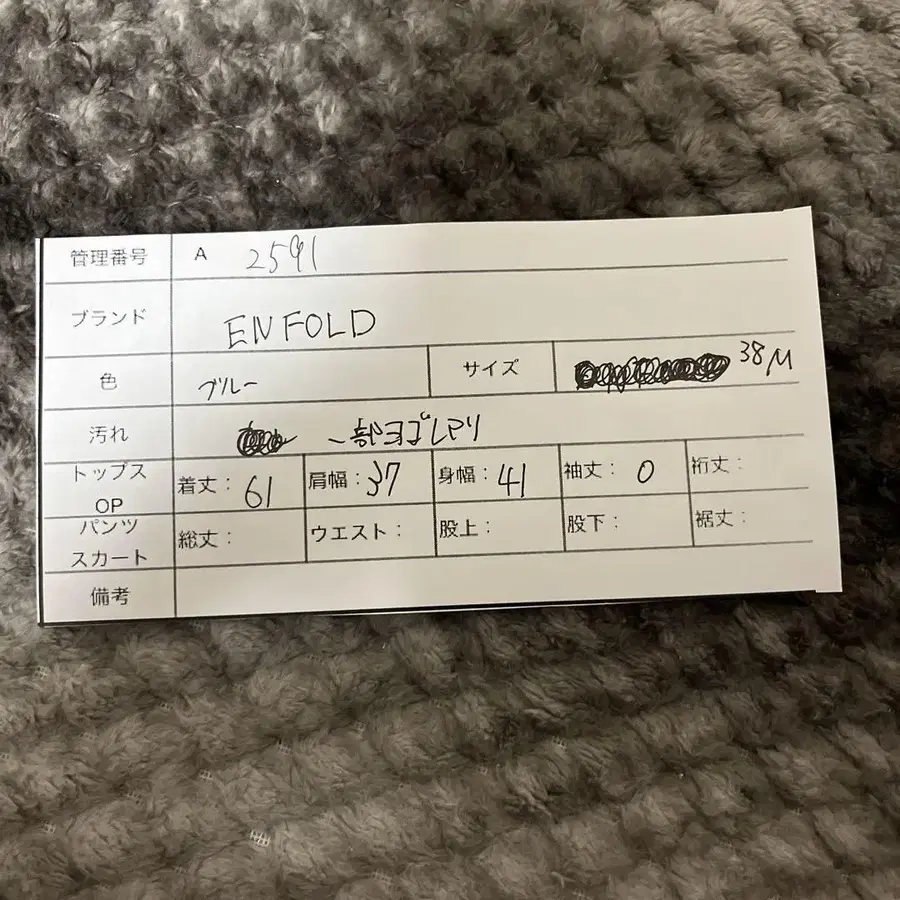 管理番号 A 2591
ブランド ENFOLD
色 ブルー サイズ 38/M
汚れ 一部ヨゴレアリ
トップス OP 着丈: 61 肩幅: 37 身幅: 41 袖丈: 0 裄丈:
パンツ スカート 総丈: ウエスト: 股上: 股下: 裾丈:
備考